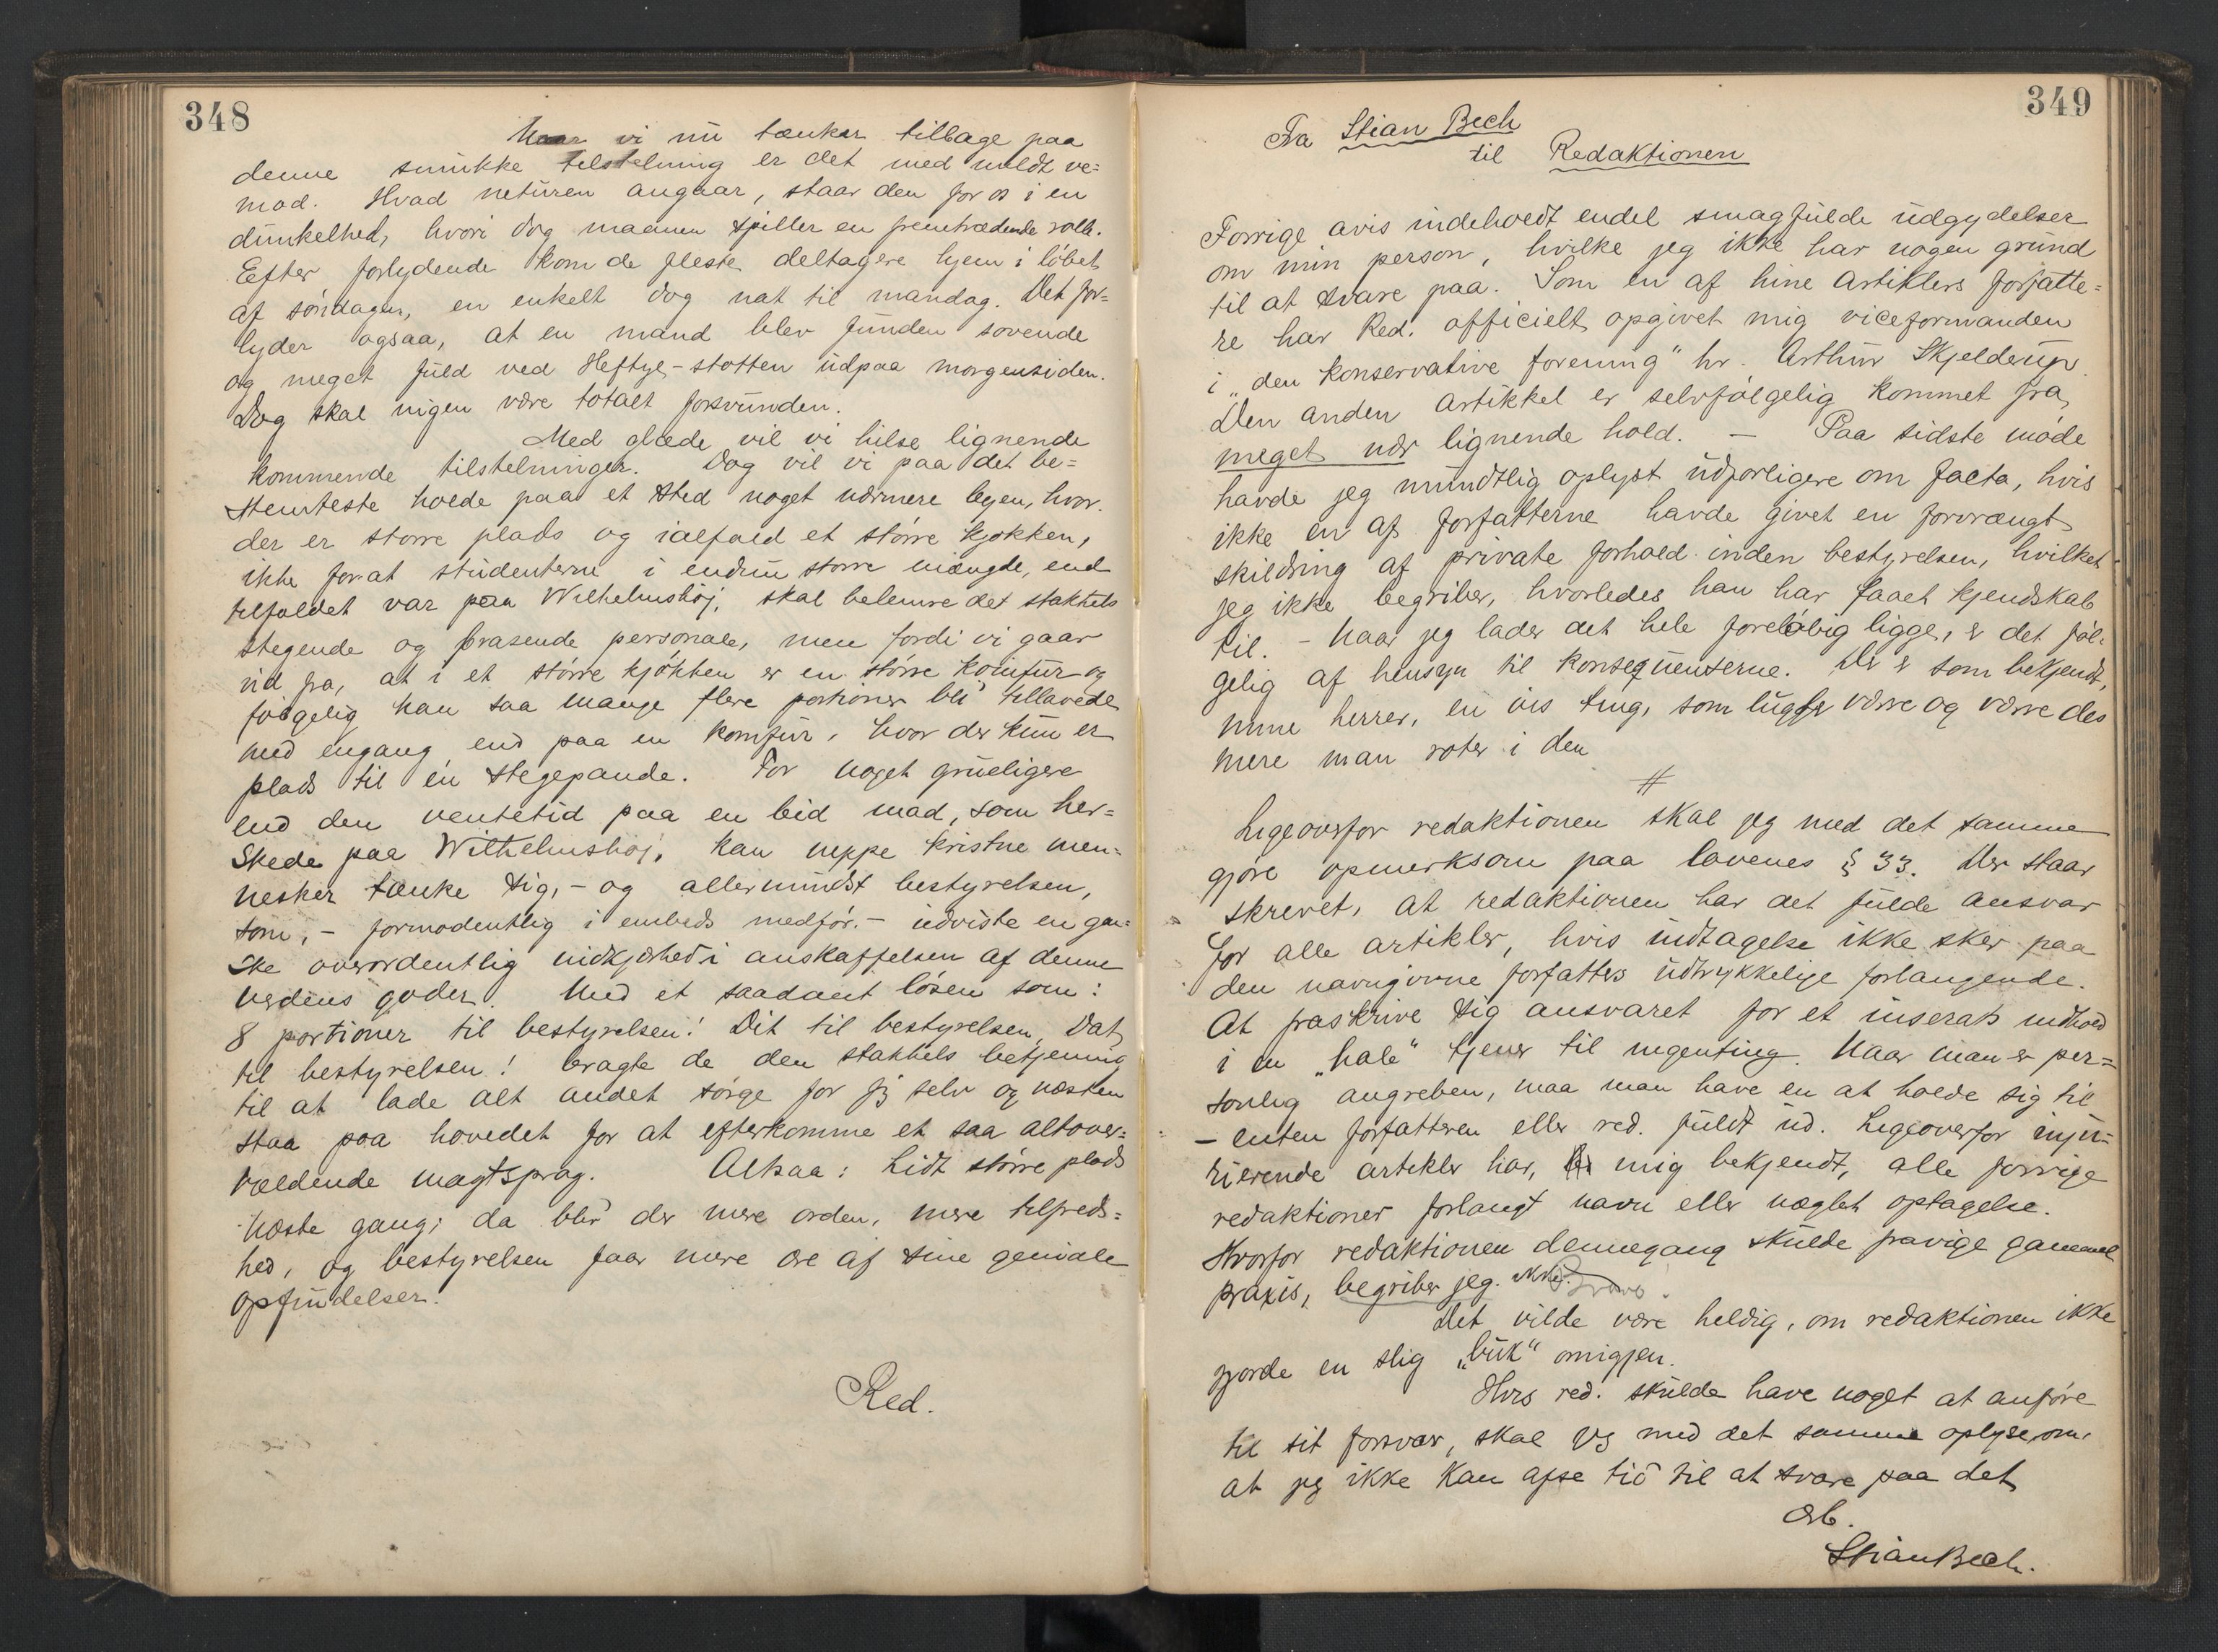 348
Naar vi nu tænker tilbage paa
denne smukke tilstelning er det med mildt ve=
mod. Hvad naturen angaar, staar den for os i en
dunkelhed, hvori dog maanen spiller en fremtrædende rolle.
Efter forlydende kom de fleste deltagere hjem i löbet
af söndagen, en enkelt dog nat til mandag. Det for=
lyder ogsaa, at en mand blev funden sovende
og meget fuld ved Heftye-stötten udpaa morgensiden.
Dog skal ingen være totalt forsvunden.
Med glæde vil vi hilse lignende
kommende tilstelninger. Dog vil vi paa det be=
stemteste holde paa et sted noget nærmere byen, hvor
der er större plads og ialfald et större kjökken,
ikke forat studenterne i endnu större mængde, end
tilfældet var paa Wilhelmshöj, skal belemre det stakkels
stegende og brasende personale, men fordi vi gaar
ud fra, at i et större kjökken er en större komfur og
fölgelig kan saa mange flere portioner bli tillavede
med engang, end paa en komfur, hvor der kun er
plads til én stegepande. For noget grueligere
end den ventetid paa en bid mad, som her=
skede paa Wilhelmshöj, kan neppe kristne men=
nesker tænke sig, - og allermindst bestyrelsen,
som, - formodentlig i embeds medför. - udviste en gan=
ske overordentlig nidkjærhed i anskaffelsen af denne
verdens goder. Med et saadant lösen som:
8 portioner til bestyrelsen! Dit til bestyrelsen, Dat
til bestyrelsen! bragte de den stakkels betjening
til at lade alt andet sörge for sig selv og næsten
staa paa hovedet for at efterkomme et saa altover=
vældende magtsprog. Altsaa: Lidt större plads
næste gang; da blir der mere orden, mere tilfreds=
hed, og bestyrelsen faar mere ære af sine geniale
opfindelser.
Red.
349
Fra Stian Bech
til Redaktionen
Forrige avis indeholdt endel smagfulde udgydelser
om min person, hvilke jeg ikke har nogen grund
til at svare paa. Som en af hine artiklers forfatte=
re har Red. officielt opgivet mig viceformanden
i „den konservative forening" hr. Arthur Skjelderup.
Den anden artikkel er selvfölgelig kommet fra
meget nær lignende hold. — Paa sidste möde
havde jeg mundtlig oplyst udförligere om facta, hvis
ikke en af forfatterne havde givet en forvrængt
skildring af private forhold inden bestyrelsen, hvilket
jeg ikke begriber, hvorledes han har faaet kjendskab
til. - Naar jeg lader det hele forelöbig ligge, er det föl=
gelig af hensyn til konsequenserne. Der er som bekjendt,
mine herrer, en vis ting, som lugter værre og værre des
mere man roter i den.
#
Ligeoverfor redaktionen skal jeg med det samme
gjöre opmerksom paa lovenes § 33. Der staar
skrevet, at redaktionen har det fulde ansvar
for alle artikler, hvis indtagelse ikke sker paa
den navngivne forfatters udtrykkelige forlangende.
At fraskrive sig ansvaret for et inserats indhold
i en „hale" tjener til ingenting. Naar man er per=
sonlig angreben, maa man have en at holde sig til
- enten forfatteren eller red. fuldt ud. Ligeoverfor inju=
rierende artikler har, mig bekjendt, alle forrige
redaktioner forlangt navn eller nægtet optagelse.
Hvorfor redaktionen dennegang skulde fravige gammel
praxis, begriber jeg ikke.
Det vilde være heldig, om redaktionen ikke
gjorde en slig „buk" omigjen.
Hvis red. skulde have noget at anföre
til sit forsvar, skal jeg med det samme oplyse om,
at jeg ikke kan afse tid til at svare paa det
Ærb.
Stian Bech.